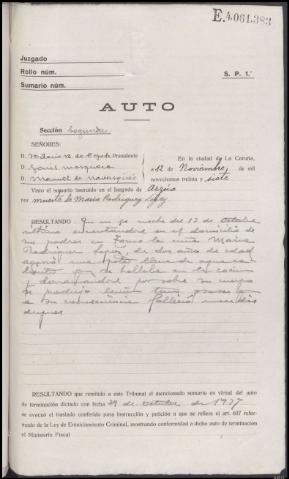 E.4.061.383
Juzgado
Rollo núm.
Sumario núm.
S. P. 1.ª
AUTO
Sección Segunda
SEÑORES:
D. Presidente
D.
D. Manuel de
En la ciudad de La Coruña,
a 12 de Noviembre de mil
novecientos treinta y siete
Visto el sumario instruído en el Juzgado de Arzúa
por muerte de Maria Rodriguez Lopez
RESULTANDO Que en la noche del 13 de Octubre
último encontrandose en el domicilio de
sus padres la niña Maria
Rodriguez Lopez, de dos años de edad
una llena de agua
que se hallaba en la cocina
y derramandose por sobre su cuerpo
se produjo
a consecuencia falleció unos dias
despues
RESULTANDO que remitido a este Tribunal el mencionado sumario en virtud del auto
de terminación dictado con fecha 29 de Octubre de 1937
se evacuó el traslado conferido para instrucción y petición a que se refiere el art. 627 refor-
mado de la Ley de Enjuiciamiento Criminal, mostrando conformidad a dicho auto de terminación
el Ministerio Fiscal